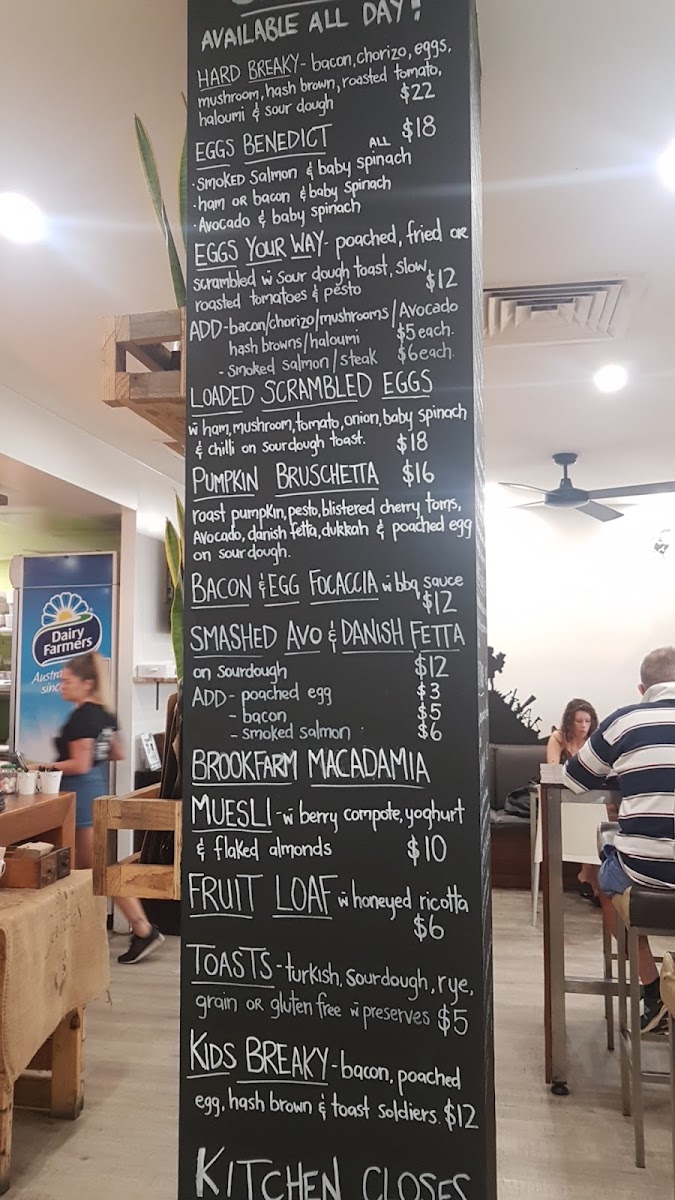 AVAILABLE ALL DAY!
HARD BREAKY - bacon, chorizo, eggs,
mushroom, hash brown, roasted tomato,
haloumi & sour dough $22
EGGS BENEDICT ALL $18
· Smoked Salmon & baby spinach
· ham OR bacon & baby spinach
· Avocado & baby spinach
EGGS YOUR WAY - poached, fried OR
scrambled w̄ sour dough toast, slow
roasted tomatoes & pesto $12
ADD - bacon/chorizo/mushrooms/Avocado
hash browns/haloumi $5 each.
- Smoked salmon/steak $6 each.
LOADED SCRAMBLED EGGS
w̄ ham, mushroom, tomato, onion, baby spinach
& chilli on sourdough toast. $18
PUMPKIN BRUSCHETTA $16
roast pumpkin, pesto, blistered cherry toms,
Avocado, danish fetta, dukkah & poached egg
on sour dough.
BACON & EGG FOCACCIA w̄ bbq sauce
$12
SMASHED AVO & DANISH FETTA
on Sourdough $12
ADD - poached egg $3
- bacon $5
- smoked salmon $6
BROOKFARM MACADAMIA
MUESLI - w̄ berry compote, yoghurt
& flaked almonds $10
FRUIT LOAF w̄ honeyed ricotta
$6
TOASTS - turkish, sourdough, rye,
grain OR gluten free w̄ preserves $5
KIDS BREAKY - bacon, poached
egg, hash brown & toast soldiers. $12
KITCHEN CLOSES
Dairy
Farmers